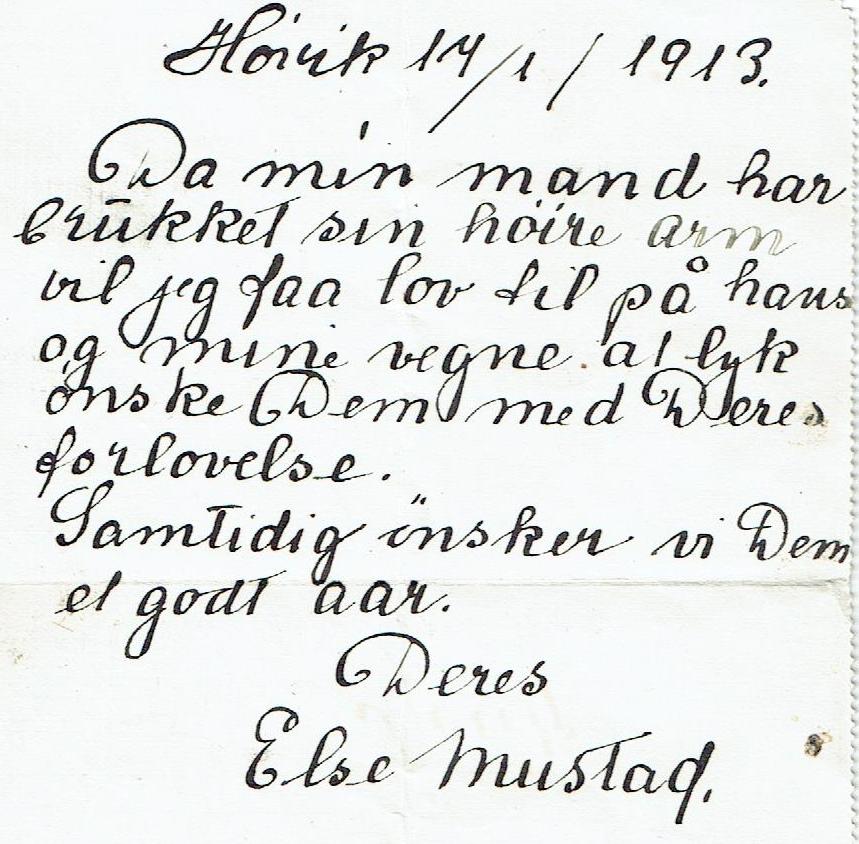 Høvik 14/1/1913.
Da min mand har
brükket sin höire arm
vil jeg faa lov til på hans
og mine vegne at lyk
önske Dem med Deres
forlovelse.
Samtidig önsker vi Dem
et godt aar.
Deres
Else Mustad.